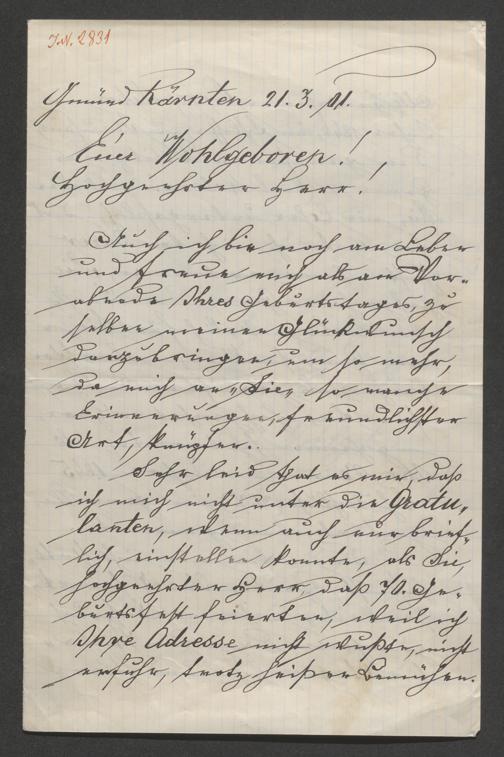 I.N. 2831
Gmünd Kärnten 21. 3. 01.
Euer Wohlgeboren!
Hochgeehrter Herr!
Auch ich bin noch am Leben
und freue mich als am Vor-
abende Ihres Geburtstages, zu
selben meinen Glückwunsch
darzubringen, um so mehr,
da mich an „Sie„ so manche
Erinnerungen, freundlichster
Art, knüpfen.
Sehr leid that es mir, daß
ich mich nicht unter die Gratu-
lanten, wenn auch nur brief-
lich, einstellen konnte, als Sie,
hochgeehrter Herr, daß 70. Ge-
burtsfest feierten, weil ich
Ihre Adresse nicht wußte, nicht
erfuhr, trotz heißer Bemühen.